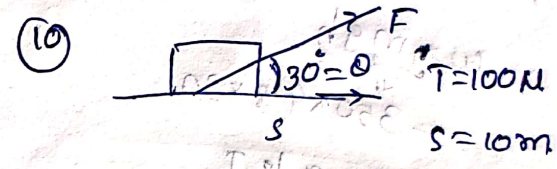 10
F
30°=θ
T=100N
S=10m
S